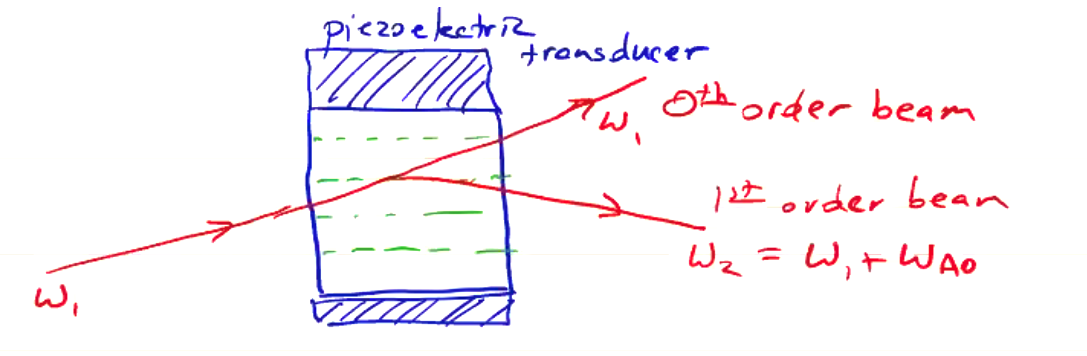 piezoelectric
transducer
ω₁ 0th order beam
1st order beam
ω₂ = ω₁ + ωAO
ω₁